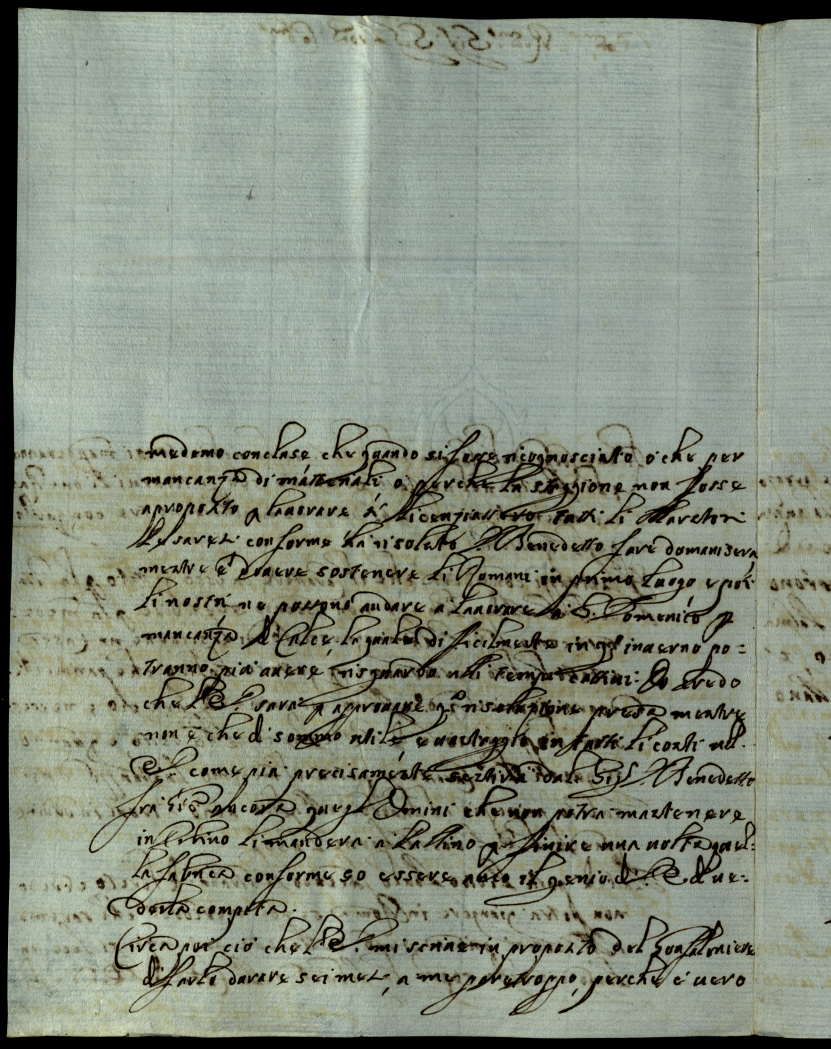 medemo concluse che quando si fosse ricognosciuto o che per
mancanza di materiali o perche la staggione non fosse
aproposito a lavorare si licenziassero tutti li
conforme ha risoluto Benedetto fare domani sera
mentre e dovere sostenere li Romani in primo luogo e poi
li nostri ne possono andare a lavorare a S. Domenico p
mancanza di Calce, la quale dificilmente in qto inverno po=
tranno piu avere risguardo alli tempi cattivi. Io credo
che V.E. sarà p approvare qta risoluzione presa mentre
non è che di sommo utile e vantaggio in tutti li conti
V.E. come piu precisamente sentira dal Sigr Benedetto
fra tanto ancora quegl Omini che non potra mantenere
in Urbino li mandera a p finire una volta quel=
la fabrica conforme so essere il genio di V.E. di ve=
derla compita.
Circa poi ciò che V.E. mi scrive in proposito del Gonfaloniere
di farlo durare sei mesi, a me par troppo, perche è vero